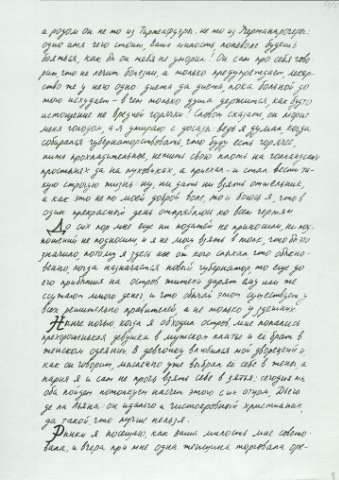 а родом он не то из Тиртеафуэры, не то из Дерганипрочерес:
одно имя чего стоит, ваша милость поневоле будешь
бояться, как бы он тебя не уморил! Он сам про себя гово-
рит, что не лечит болезни, а только предупреждает, лекар-
ство же у него одно: диета да диета, пока больной до
того исхудает – в чем только душа держится как будто
истощение не вредней горячки! Словом сказать, он морит
меня голодом, а я умираю с досады ведь я думал когда
собирался губернаторствовать, что буду есть горячее,
пить прохладительное, нежить свою плоть на голландских
простынях да на пуховиках, а приехал – и стал вести ни-
кую строгую жизнь ну, ни дать ни взять отшельник,
а как это не по моей доброй воле, то и боюсь я, что в
один прекрасный день отправлюсь ко всем чертям
До сих пор мне еще ни податей не приносили, ни под-
ношений не подносили, и я не могу взять в толк, что бы это
значило, потому я здесь кое от кого слыхал, что обыкно-
венно, когда назначается новый губернатор, то еще до
его прибытия на остров жители дарят ему или же
ссужают много денег и что обычай этот существует у
всех решительно правителей, а не только у здешних
Ныне ночью когда я обходил остров мне попались
прехорошенькая девушка в мужском платье и ее брат в
женском одеянии. В девчонку влюбился мой дворецкий и,
как он говорит, мысленно уже выбрал ее себе в жены, а
парня я и сам не прочь взять себе в зятья: сегодня мы
оба пойдем потолкуем насчет этого с их отцом, Диего
де ла Льяна: он идальго и чистокровный христианин,
да такой что лучше нельзя.
Рынки я посещаю, как ваша милость мне совето-
вала, и вчера при мне одна женщина торговала оре-